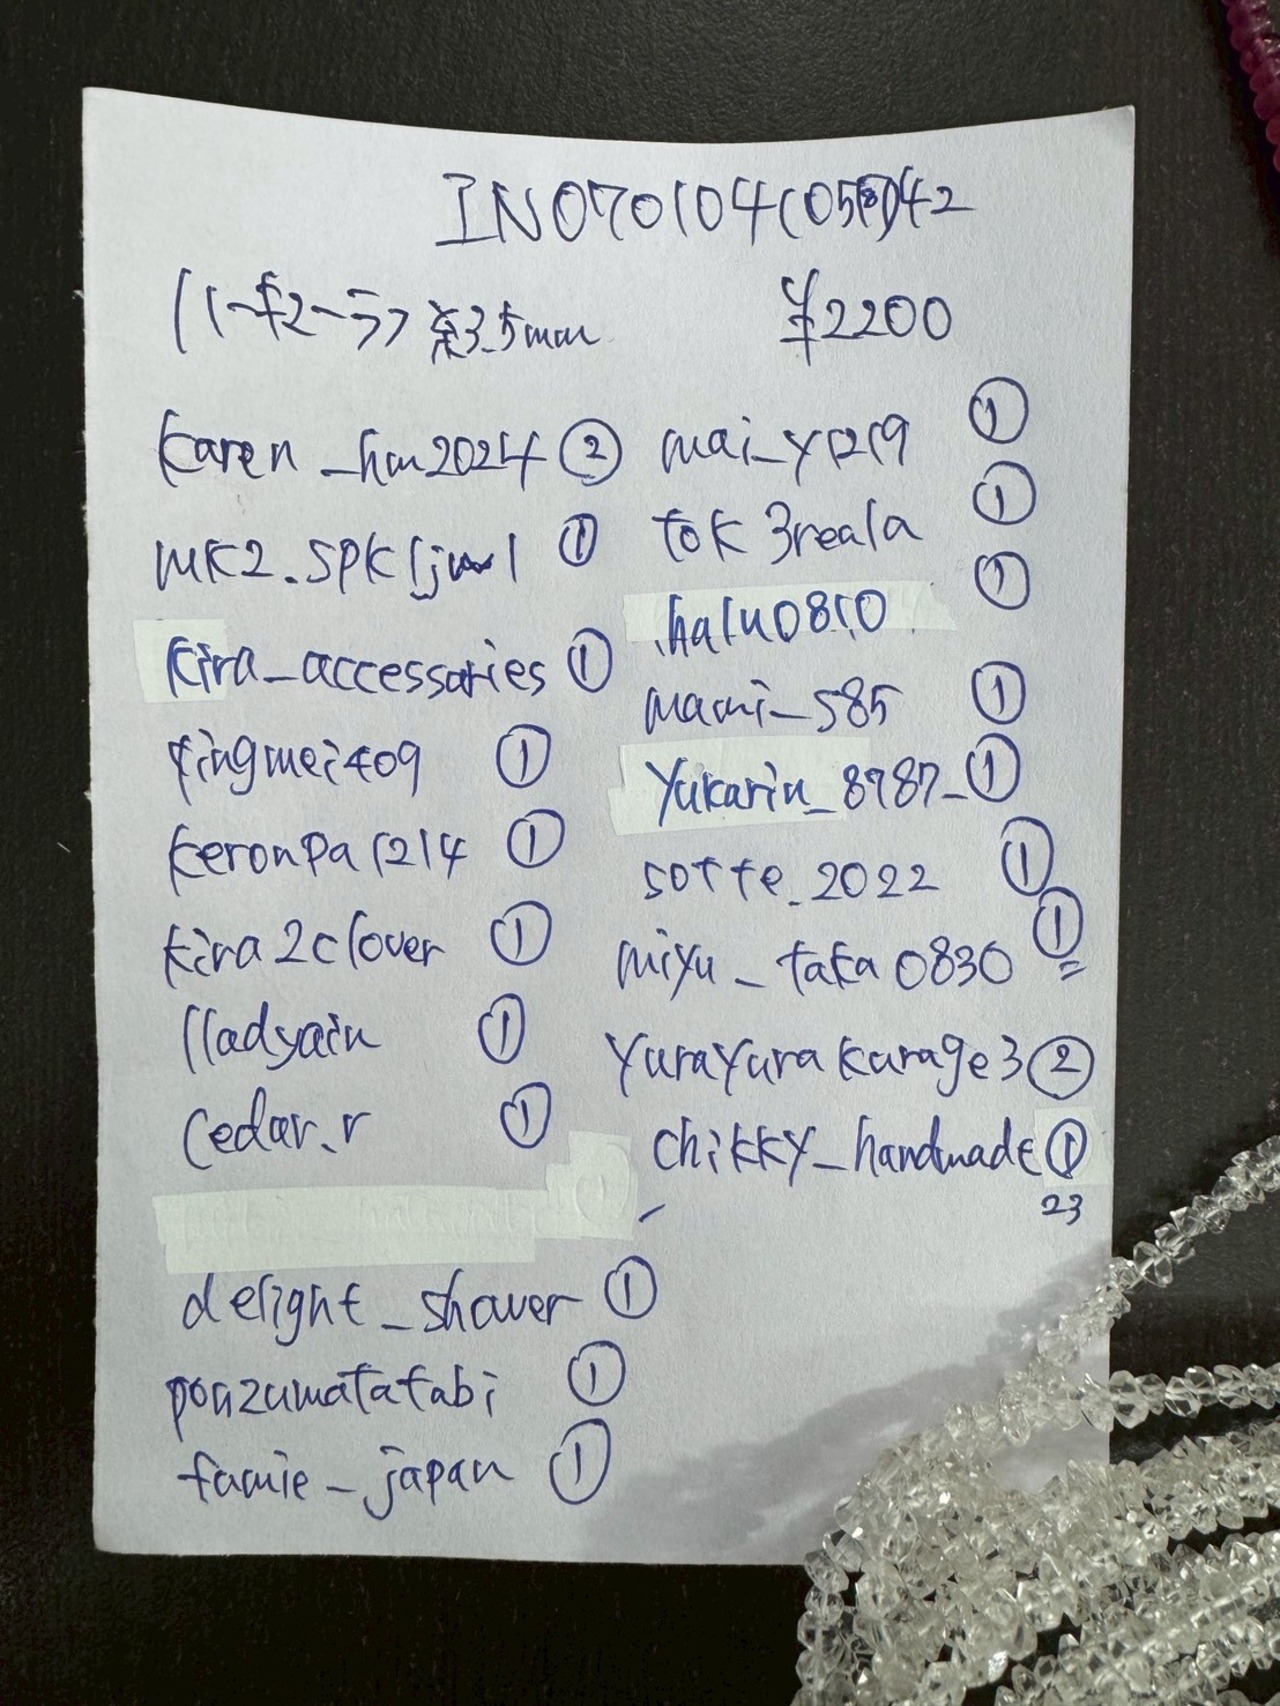 IN070104(058)42
ハーキマーラフ 約3.5mm ¥2200
karen_hm2024 ②
MK2.SPKljwl ①
kira_accessaries ①
xingmei409 ①
keronpa1214 ①
kira2clover ①
lladyain ①
cedar.r ①
delight_shower ①
ponzumatatabi ①
famie_japan ①
mai_y1219 ①
tok3reala ①
halu0810 ①
mami_585 ①
yukarin_8787_ ①
sotte_2022 ①
miyu_taka0830 ①
yurayurakurage3 ②
chikky_handmade ①
23